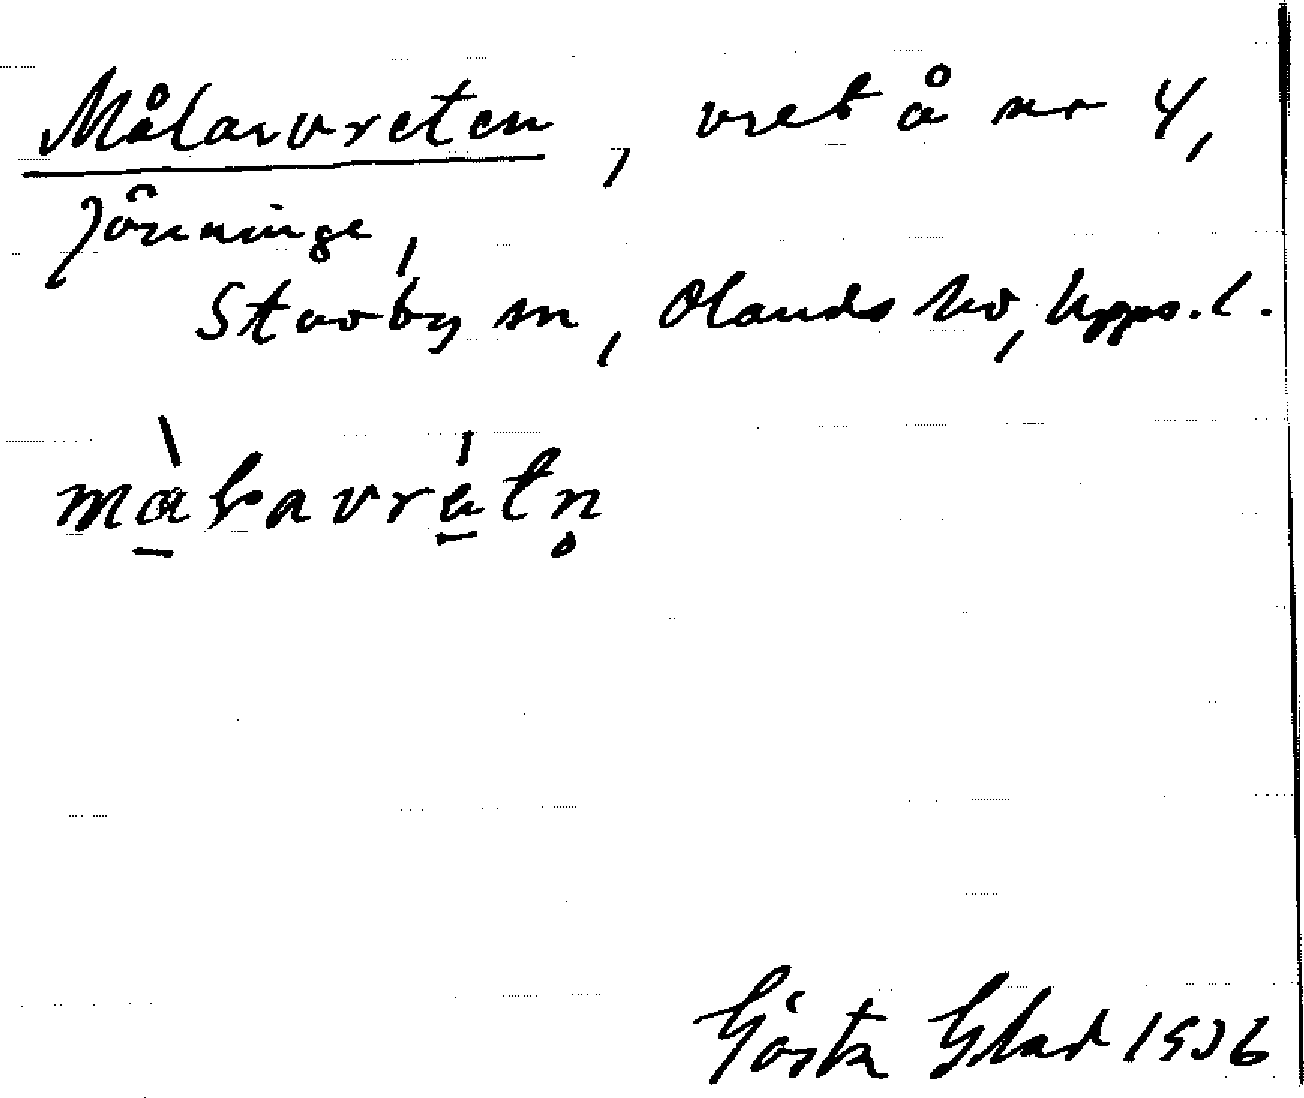 Målarvreten, vret å nr 4,
Jönninge,
Stavby sn, Olands hd, Upps. l.
målavretn
Gösta Glad 1936